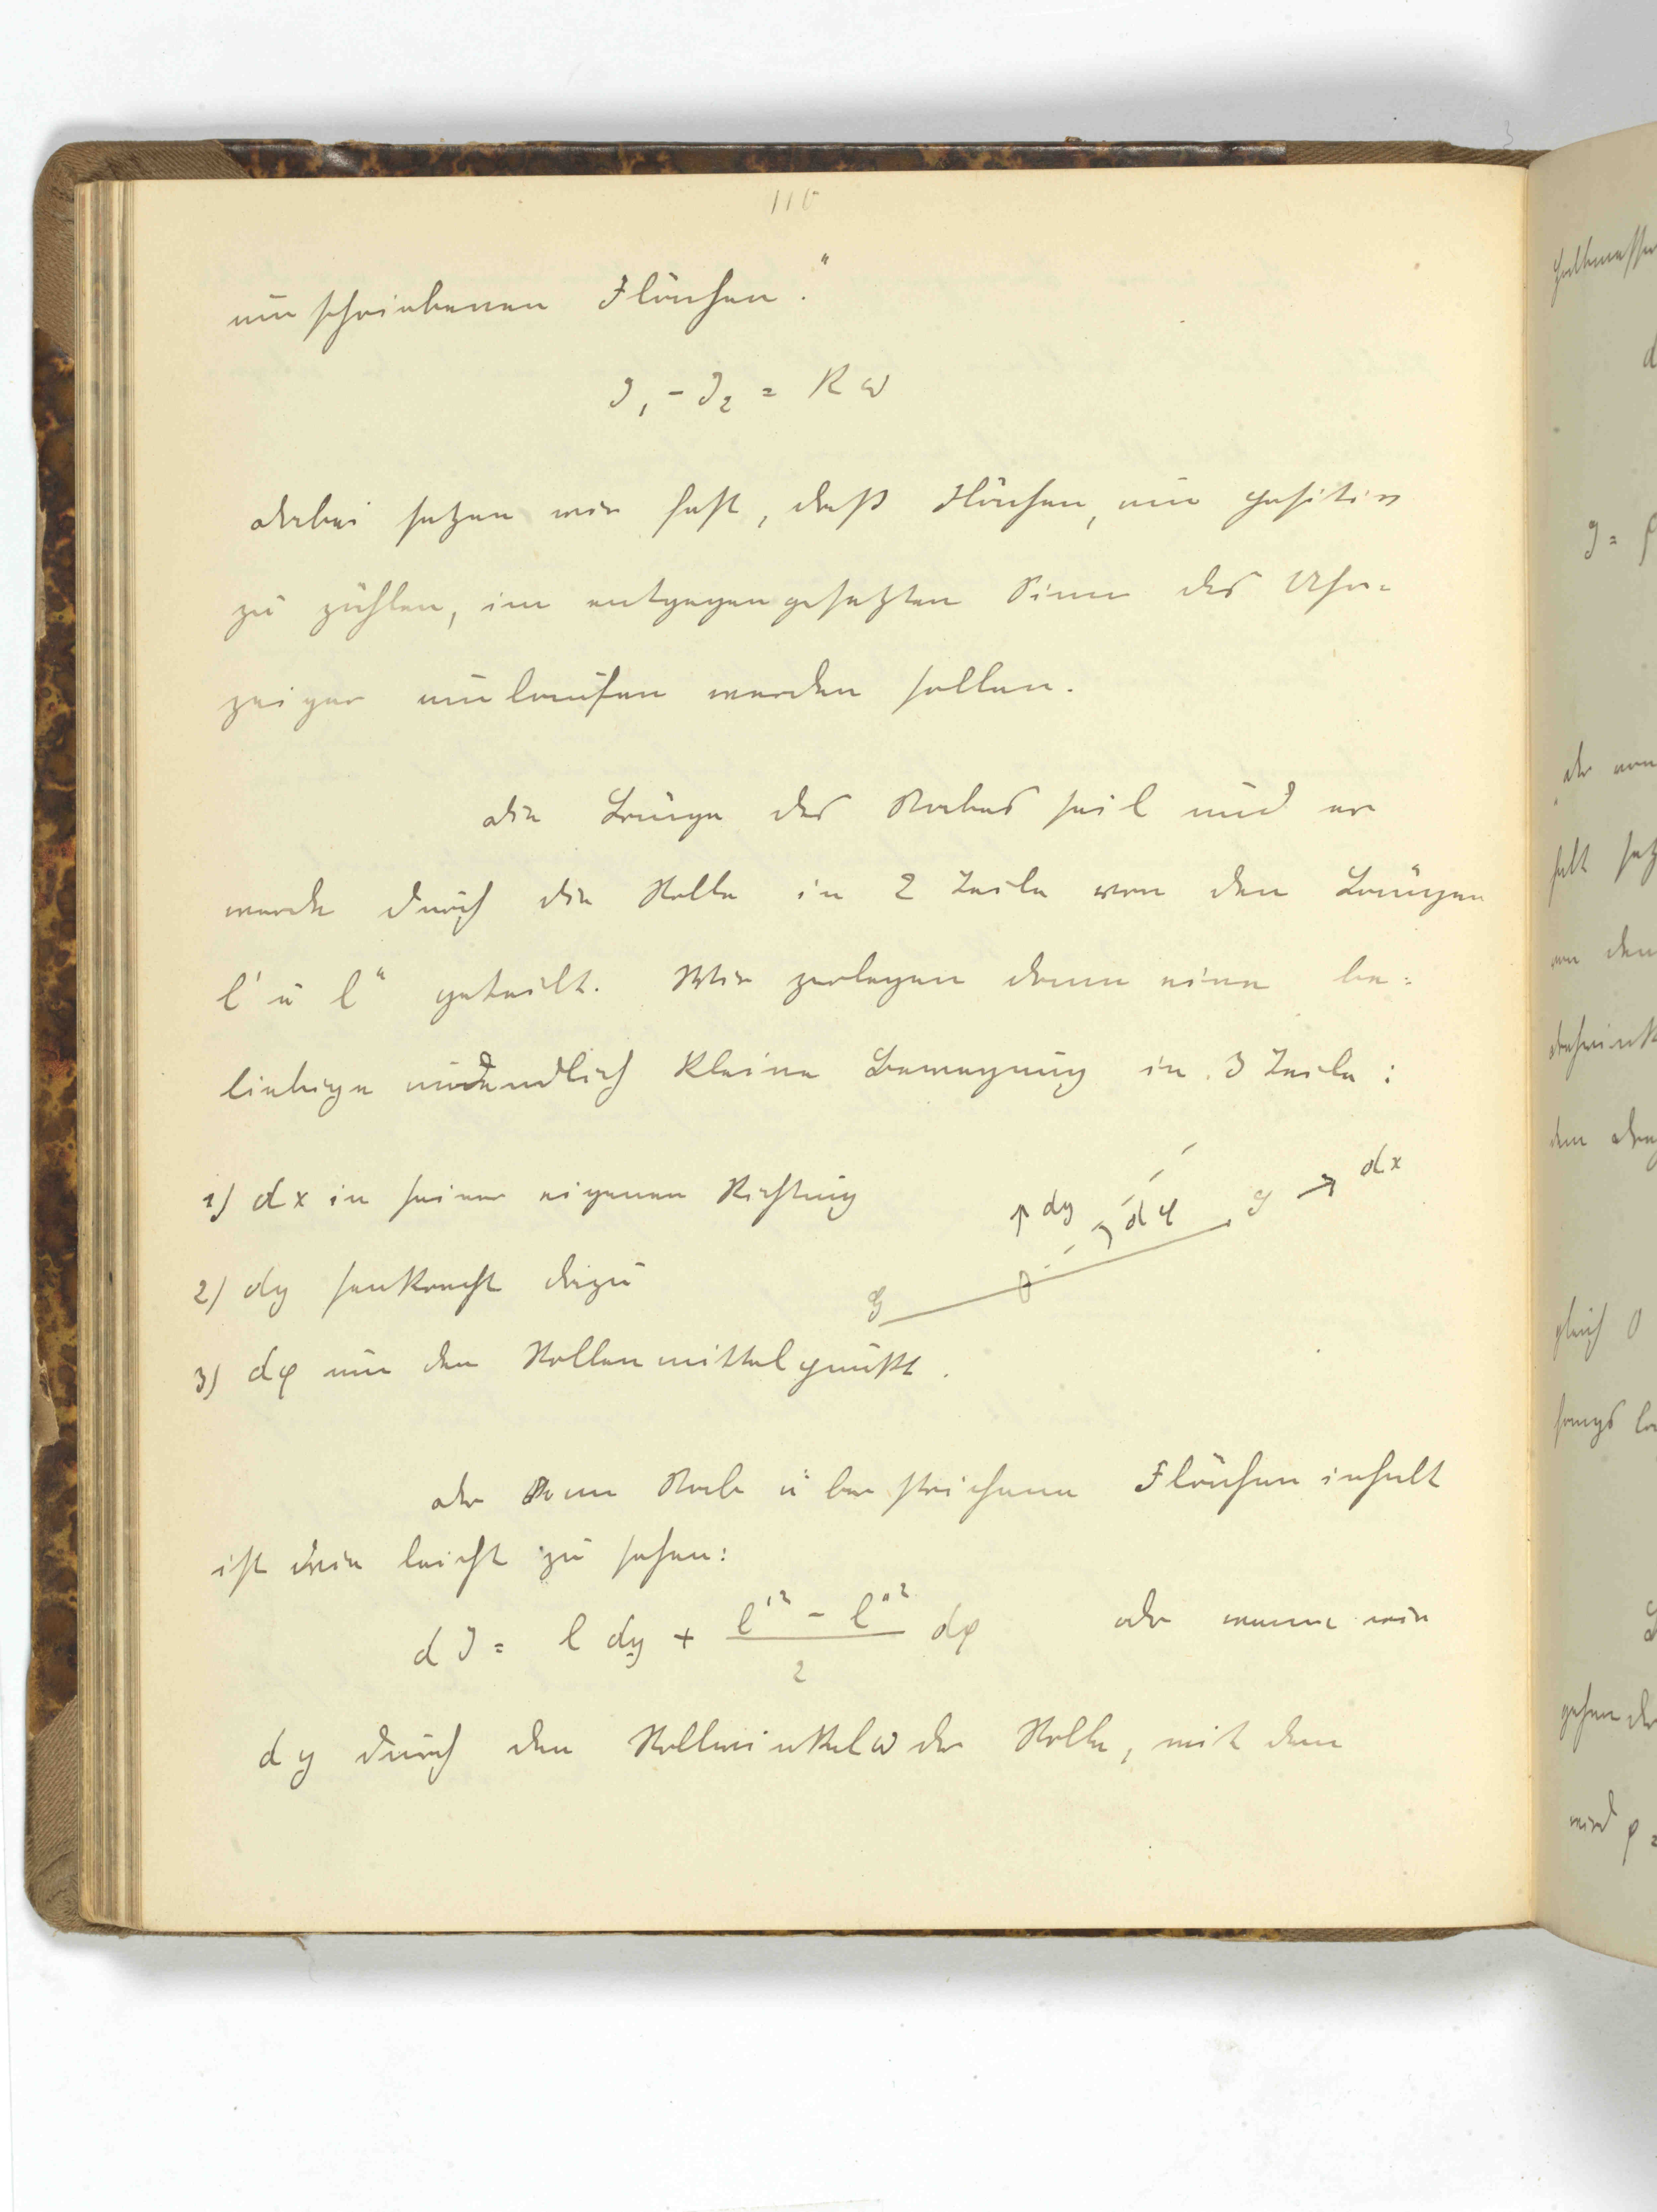 110
umschriebenen Flächen."
J₁ - J₂ = R ω
dabei setzen wir fest, daß Flächen, um positiv
zu zählen, im entgegengesetzten Sinn des Uhr-
zeiger umlaufen werden sollen.
Die Länge des Stabes sei l und er
werde durch die Rolle in 2 Teile von den Längen
l' u l" geteilt. Wir zerlegen dann eine be-
liebige unendlich kleine Bewegung in 3 Teile:
1) dx in seiner eigenen Richtung
dy dφ dx
2) dy senkrecht dazu
3) dφ um den Rollenmittelpunkt.
Der vom Stab überstrichene Flächeninhalt
ist wie leicht zu sehen:
dJ = l dy + (l'² - l"²)/2 dφ oder wenn wir
dy durch den Rollwinkel ω der Rolle, mit dem